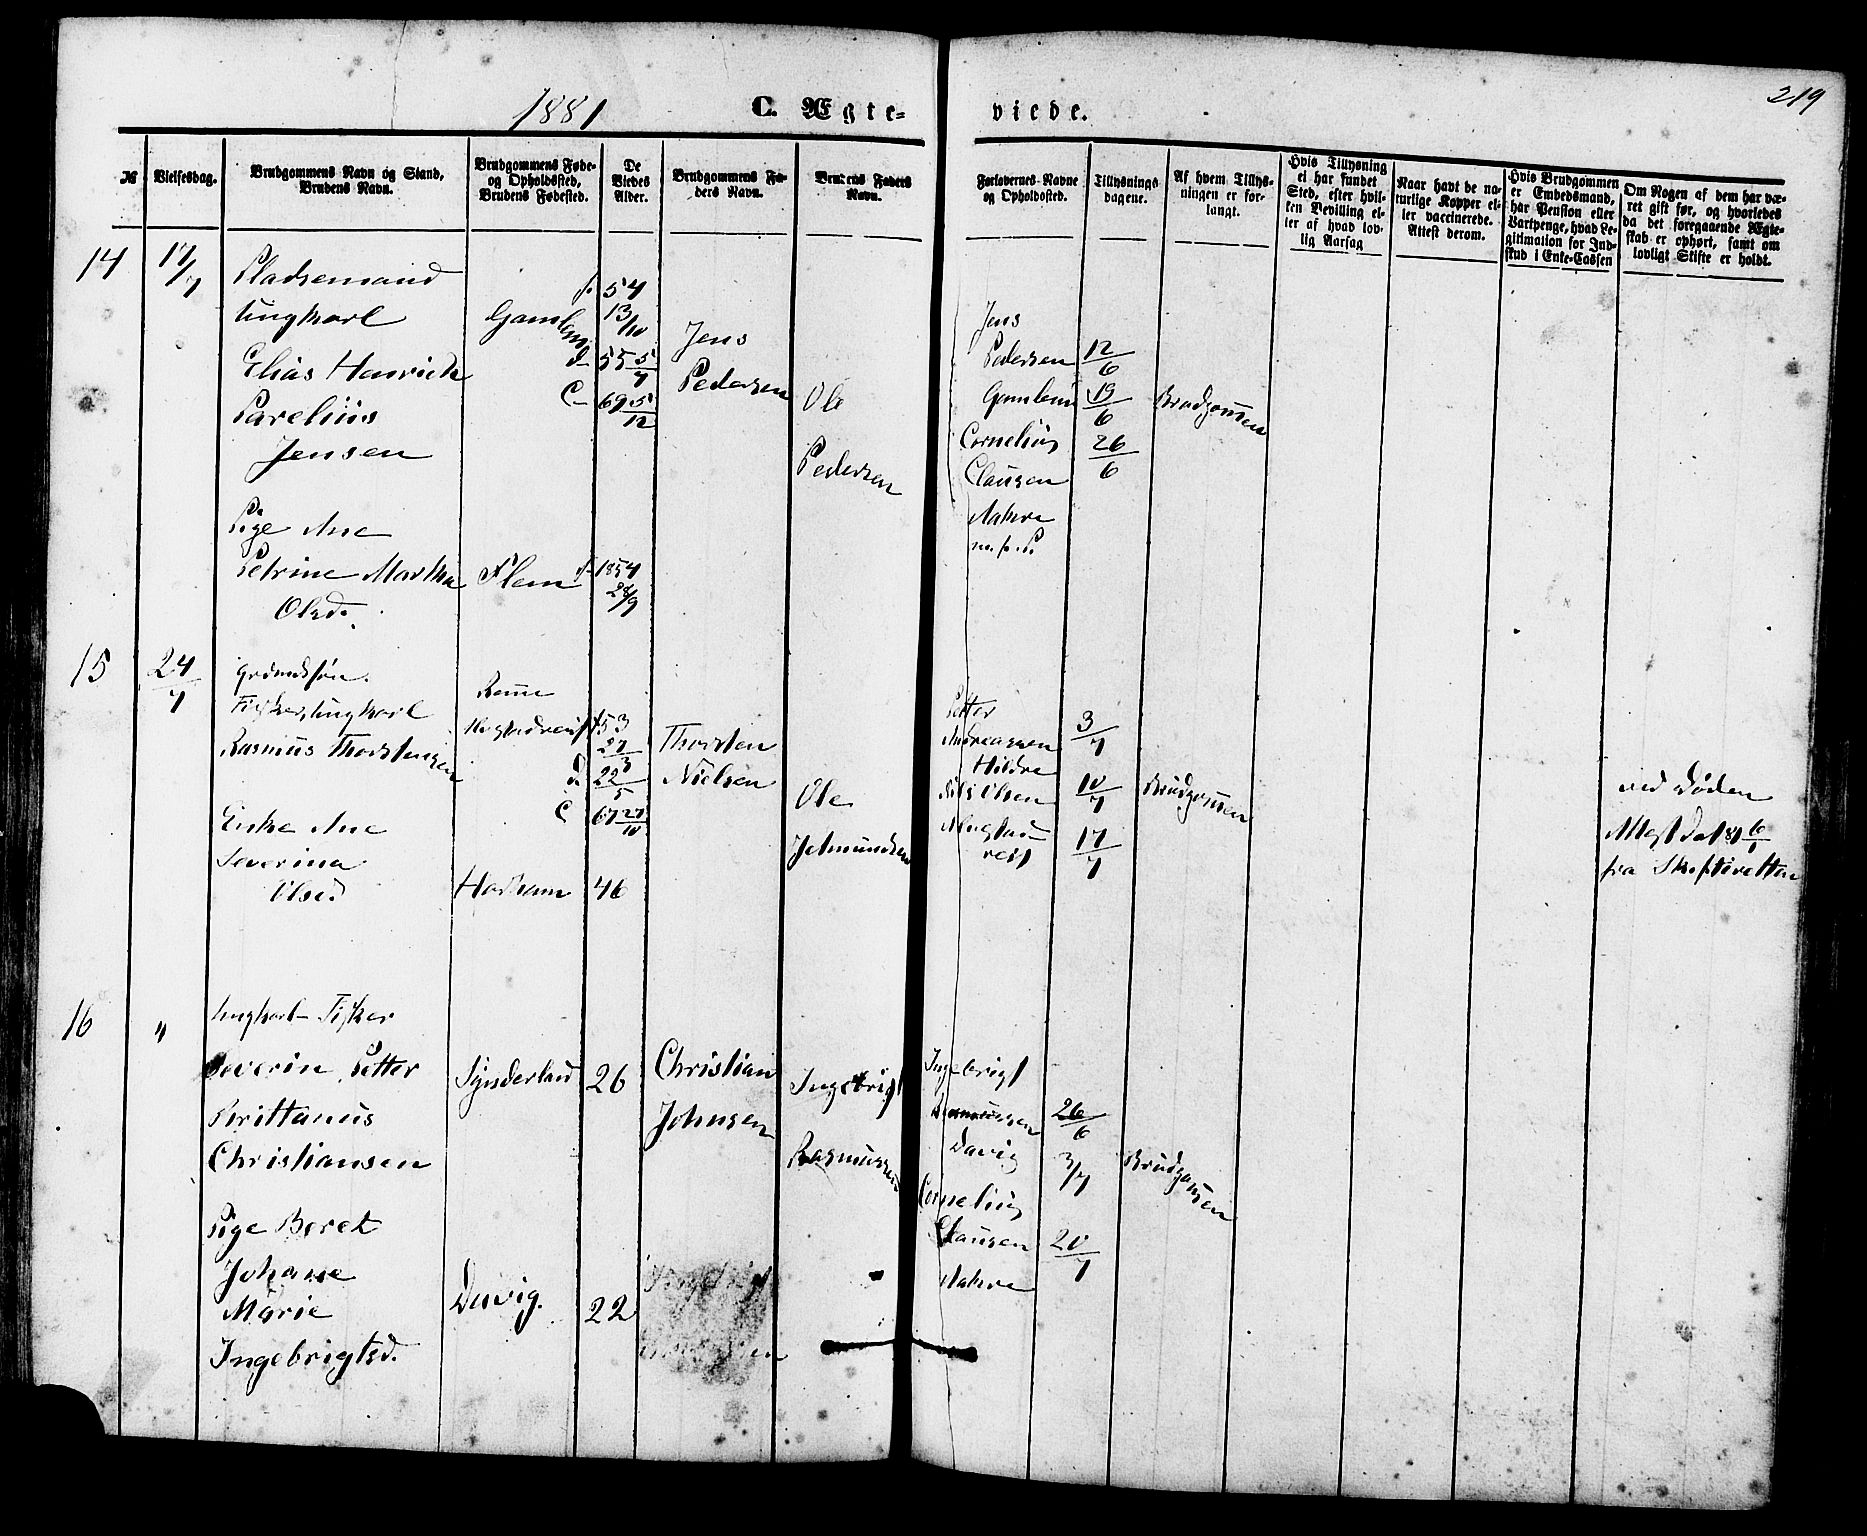 1881
C. Ægte-
viede.
219
№
Vielsesdag.
Brudgommens Navn og Stand,
Brudens Navn.
Brudgommens Føde-
og Opholdssted,
Brudens Fødested.
De
Viedes
Alder.
Brudgommens Fa-
ders Navn.
Brudens Faders
Navn.
Forlovernes Navne
og Opholdssted.
Tillysnings
dagene.
Af hvem Tillys-
ningen er for-
langt.
Hvis Tillysning
ei har fundet
Sted, efter hvil-
ken Bevilling el-
ler af hvad lov-
lig Aarsag
Naar havt de na-
turlige Kopper el-
ler vaccinerede.
Attest derom.
Hvis Brudgommen
er Embedsmand,
har Pension eller
Vartpenge, hvad Le-
gitimation for Ind-
skud i Enke-Cassen
Om Nogen af dem har væ-
ret gift før, og hvorledes
da det foregaaende Ægte-
skab er ophørt, samt om
lovligt Skifte er holdt.
14
17/7
Pladsemand
Ungkarl
Elias Henrick
Parelius
Jensen
Gamlem
f. 54
13/10
d. 55 5/7
C. 69 5/12
Jens
Pedersen
Ole
Pedersen
Pige Ane
Petrine Martha
Olsd.
Flem
f. 1854
28/9
Jens
Pedersen
Gamlem
Cornelius
Clausen
Aakre
12/6
19/6
26/6
Brudgommen
15
24/7
Fisker, Ungkarl
Rasmus Thorstensen
53
27/3
d. 22/5
C 67 27/10
Thorsten
Nielsen
Ole
Jetmundsen
Enke Ane
Severina
Olsd
Harham
46
Petter
Andreassen
Hildre
Nils Olsen
3/7
10/7
17/7
Brudgommen
ved Døden
Attest dat 81 6/1
fra Skifteretten
16
"
Ungkarl Fisker
Severin Petter
Brittanus
Christiansen
Synderland
26
Christian
Johnsen
Ingebrigt
Rasmussen
Pige Beret
Johane
Marie
Ingebrigtsd.
Davig.
22
Ingebrigt
Rasmussen
Davig
Cornelius
Clausen
Aakre
26/6
3/7
20/7
Brudgommen